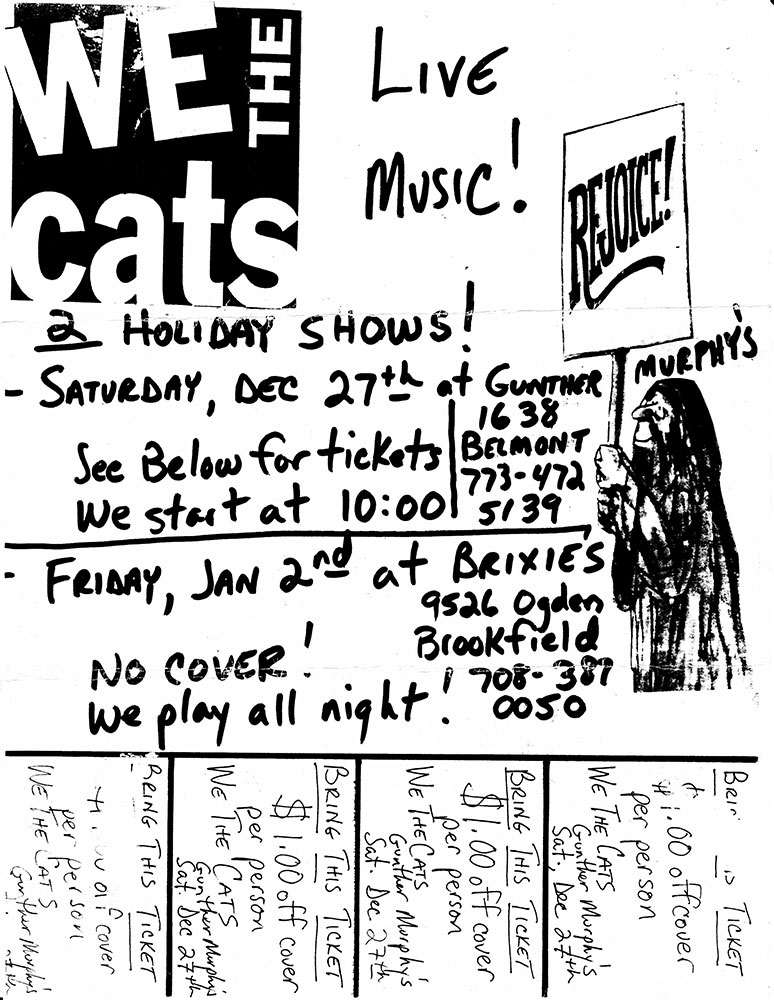 WE THE
cats
LIVE
MUSIC!
REJOICE!
2 HOLIDAY SHOWS!
- SATURDAY, DEC 27th at GUNTHER MURPHY'S
1638
BELMONT
773-472
5139
See Below for tickets
We start at 10:00
- FRIDAY, JAN 2nd at BRIXIE'S
9526 Ogden
Brookfield
708-387
0050
NO COVER!
We play all night!
BRING THIS TICKET
off cover
per person
WE THE CATS
Gunther Murphy's
BRING THIS TICKET
$1.00 off cover
per person
WE THE CATS
Gunther Murphy's
Sat. Dec 27th
BRING THIS TICKET
$1.00 off cover
per person
WE THE CATS
Gunther Murphy's
Sat. Dec 27th
TICKET
$1.00 off cover
per person
WE THE CATS
Gunther Murphy's
Sat., Dec 27th